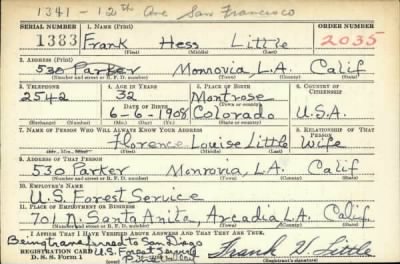 1341 - 12th Ave San Francisco
SERIAL NUMBER 1. NAME (Print) ORDER NUMBER
1383 Frank Hess Little 2035
(First) (Middle) (Last)
2. ADDRESS (Print)
530 Parker Monrovia, L.A. Calif
(Number and street or R. F. D. number) (Town) (County) (State)
3. TELEPHONE 4. AGE IN YEARS 5. PLACE OF BIRTH 6. COUNTRY OF CITIZENSHIP
2542 32 Montrose
DATE OF BIRTH (Town or county)
6-6-1908 Colorado U.S.A.
(Exchange) (Number) (Mo.) (Day) (Yr.) (State or country)
7. NAME OF PERSON WHO WILL ALWAYS KNOW YOUR ADDRESS 8. RELATIONSHIP OF THAT PERSON
Florence Louise Little Wife
(Mr., Mrs., (First) (Middle) (Last)
9. ADDRESS OF THAT PERSON
530 Parker Monrovia, L.A. Calif
(Number and street or R. F. D. number) (Town) (County) (State)
10. EMPLOYER'S NAME
U.S. Forest Service
11. PLACE OF EMPLOYMENT OR BUSINESS
701 N. Santa Anita, Arcadia L.A. Calif.
(Number and street or R. F. D. number) (Town) (County) (State)
I AFFIRM THAT I HAVE VERIFIED ABOVE ANSWERS AND THAT THEY ARE TRUE.
Being transferred to San Diego
REGISTRATION CARD U.S. Forest Service
D. S. S. Form 1 Frank H Little